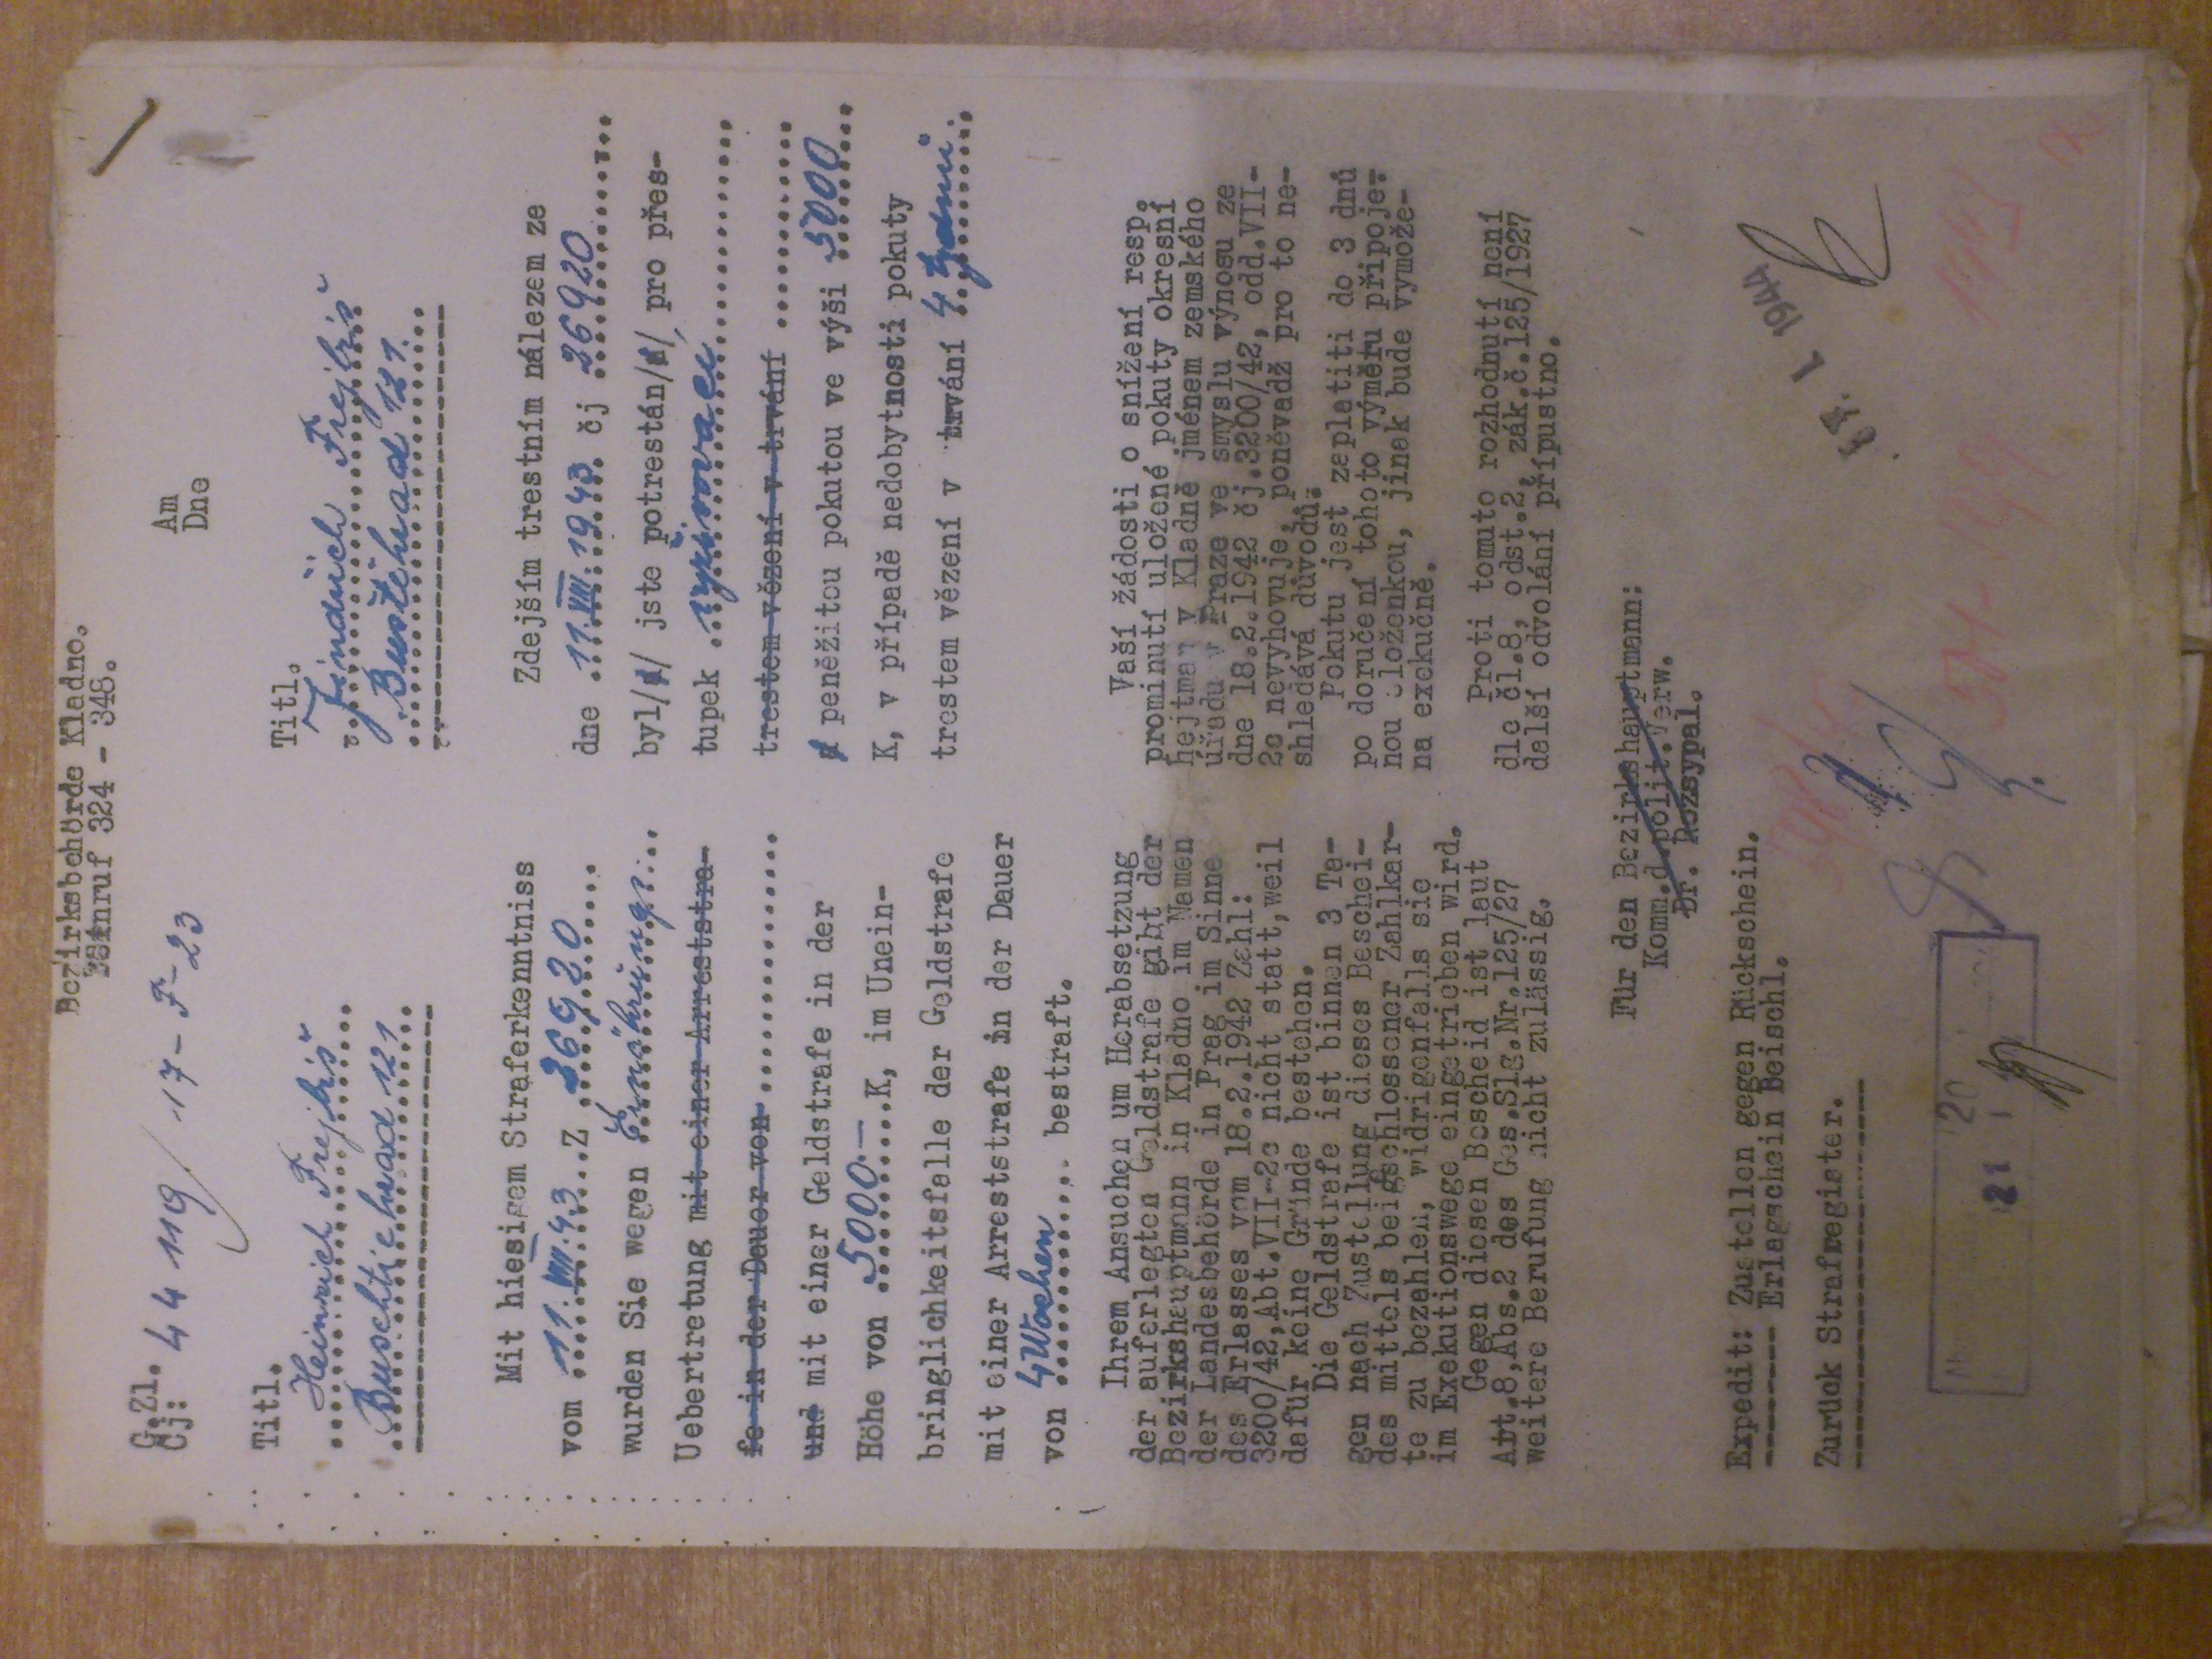 Bezirksbehörde Kladno.
324 - 348.
G.Zl.
Čj: 44 119/ 17-F-23
Am
Dne
Titl.
Heinrich Frejbiš
Buschtiehrad 121
Titl.
Jindřich Frejbiš
Buštěhrad 121.
Mit hiesigem Straferkenntniss
vom 11.VIII.43 Z 26920
wurden Sie wegen Ernährungs
Uebertretung mit einer Arreststra-
fe in der Dauer von
und mit einer Geldstrafe in der
Höhe von 5000.- K, im Unein-
bringlichkeitsfalle der Geldstrafe
mit einer Arreststrafe in der Dauer
von 4 Wochen bestraft.
Ihrem Ansuchen um Herabsetzung
der auferlegten Geldstrafe gibt der
Bezirkshauptmann in Kladno im Namen
der Landesbehörde in Prag im Sinne
des Erlasses vom 18.2.1942 Zahl:
3200/42,Abt.VII-2c nicht statt,weil
dafür keine Gründe bestehen.
Die Geldstrafe ist binnen 3 Ta-
gen nach Zustellung dieses Beschei-
des mittels beigeschlossener Zahlkar-
te zu bezahlen, widrigenfalls sie
im Exekutionswege eingetrieben wird.
Gegen diesen Bescheid ist laut
Art.8,Abs.2 des Ges.Slg.Nr.125/27
weitere Berufung nicht zulässig.
Zdejším trestním nálezem ze
dne 11.VIII.1943 čj 26920
byl/a/ jste potrestán/a/ pro přes-
tupek vyživovací
trestem vězení v trvání
a peněžitou pokutou ve výši 5000
K, v případě nedobytnosti pokuty
trestem vězení v trvání 4 týdnů.
Vaší žádosti o snížení resp.
prominutí uložené pokuty okresní
hejtman v Kladně jménem zemského
úřadu v Praze ve smyslu výnosu ze
dne 18.2.1942 čj.3200/42, odd.VII-
2c nevyhovuje, poněvadž pro to ne-
shledává důvodů.
Pokutu jest zaplatiti do 3 dnů
po doručení tohoto výměru připoje-
nou složenkou, jinak bude vymože-
na exekučně.
Proti tomuto rozhodnutí není
dle čl.8, odst.2, zák.č.125/1927
další odvolání přípustno.
Für den Bezirkshauptmann:
Komm.d.polit.Verw.
Dr. Rozsypal.
Expedit: Zustellen gegen Rückschein.
Erlagschein Beischl.
Zurück Strafregister.
I. 1944
20
21 I